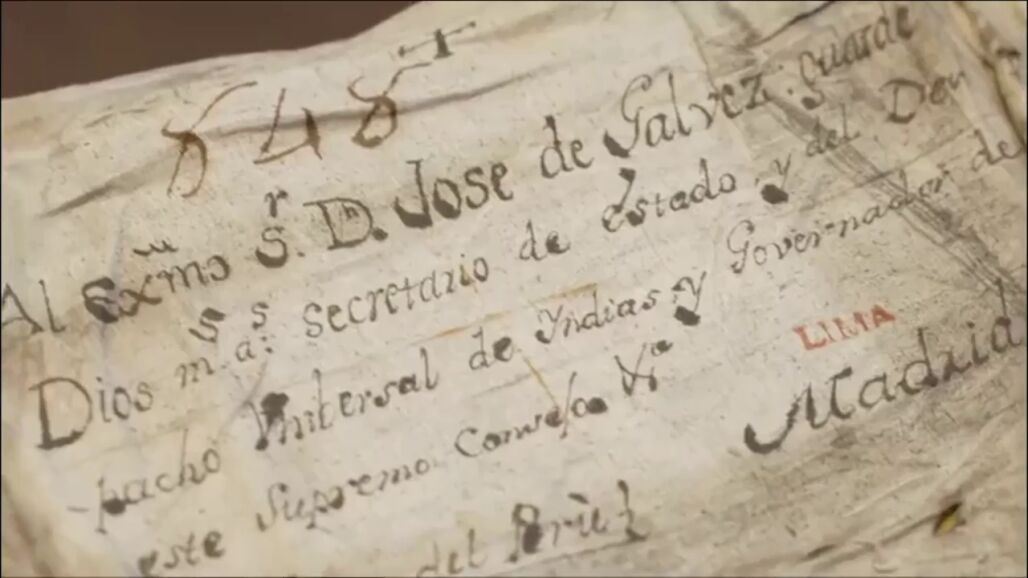 848
Al exmo Sr. Dn. Jose de Galvez: guarde
Dios ms. as. secretario de estado y del Des
-pacho Vnibersal de Yndias y Governador de
este Supremo Consejo. Va
LIMA
Madrid
del